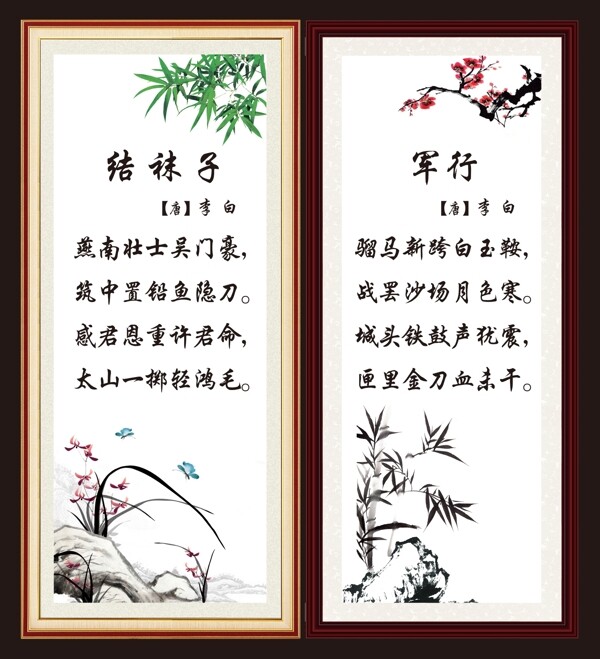 结袜子
【唐】李白
燕南壮士吴门豪，
筑中置铅鱼隐刀。
感君恩重许君命，
太山一掷轻鸿毛。
军行
【唐】李白
骝马新跨白玉鞍，
战罢沙场月色寒。
城头铁鼓声犹震，
匣里金刀血未干。